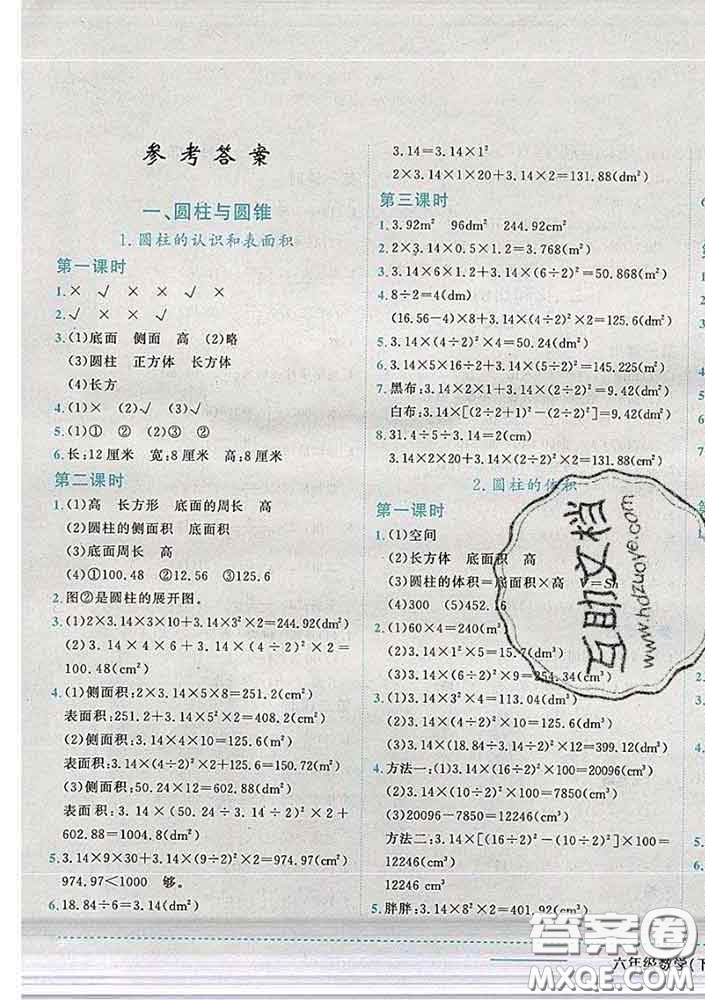 参考答案
一、圆柱与圆锥
1.圆柱的认识和表面积
第一课时
1.× √ × √ ×
2.√ × √ √
3.(1)底面 侧面 高 (2)略
(3)圆柱 正方体 长方体
(4)长方
4.(1)× (2)√ (3)× (4)√
5.(1)① ② (2)① ②
6.长:12厘米 宽:8厘米 高:8厘米
第二课时
1.(1)高 长方形 底面的周长 高
(2)圆柱的侧面积 底面积
(3)底面周长 高
(4)①100.48 ②12.56 ③125.6
2.图②是圆柱的展开图。
3.(1)2×3.14×3×10+3.14×3²×2=244.92(dm²)
(2)3.14×4×6+3.14×(4÷2)²×2=100.48(dm²)
4.(1)侧面积:2×3.14×5×8=251.2(cm²)
表面积:251.2+3.14×5²×2=408.2(cm²)
(2)侧面积:3.14×4×10=125.6(cm²)
表面积:3.14×(4÷2)²×2+125.6=150.72(cm²)
(3)侧面积:50.24×12=602.88(dm²)
表面积:3.14×(50.24÷3.14÷2)²×2+
602.88=1004.8(dm²)
5.3.14×9×30+3.14×(9÷2)²×2=974.97(cm²)
974.97<1000 够。
6.18.84÷6=3.14(dm)
3.14=3.14×1²
2×3.14×1×20+3.14×1²×2=131.88(dm²)
第三课时
1.3.92m² 96dm² 244.92(cm²)
2.2×3.14×0.5×1.2=3.768(m²)
3.3.14×6×1.2+3.14×(6÷2)²=50.868(m²)
4.8÷2=4(dm)
(16.56-4)×8+3.14×(4÷2)²×2=125.6(dm²)
5.3.14×(4÷2)²×4=50.24(dm²)
6.3.14×5×16÷2+3.14×(5÷2)²=145.225(m²)
7.黑布:3.14×2×1+3.14×(2÷2)²=9.42(dm²)
白布:3.14×[(2÷2+1)²-(2÷2)²]=9.42(dm²)
8.31.4÷5÷3.14=2(cm)
3.14×2×20+3.14×(2÷2)²×2=131.88(cm²)
2.圆柱的体积
第一课时
1.(1)空间
(2)长方体 底面积 高
(3)圆柱的体积=底面积×高 V=Sh
(4)300 (5)452.16
2.(1)60×4=240(m³)
(2)3.14×1²×5=15.7(dm³)
(3)3.14×(6÷2)²×9=254.34(cm³)
3.(1)3.14×3²×4=113.04(dm³)
(2)3.14×(4÷2)²×10=125.6(dm³)
(3)3.14×(18.84÷3.14÷2)²×12=399.12(dm³)
4.方法一:(1)3.14×(16÷2)²×100=20096(cm³)
(2)3.14×(10÷2)²×100=7850(cm³)
(3)20096-7850=12246(cm³)
方法二:3.14×[(16÷2)²-(10÷2)²]×100=
12246(cm³)
12246cm³
5.胖胖:3.14×8²×2=401.92(cm³)
互助文档
www.hdzuoye.com
六年级数学(下
答案圈
MXQE.COM